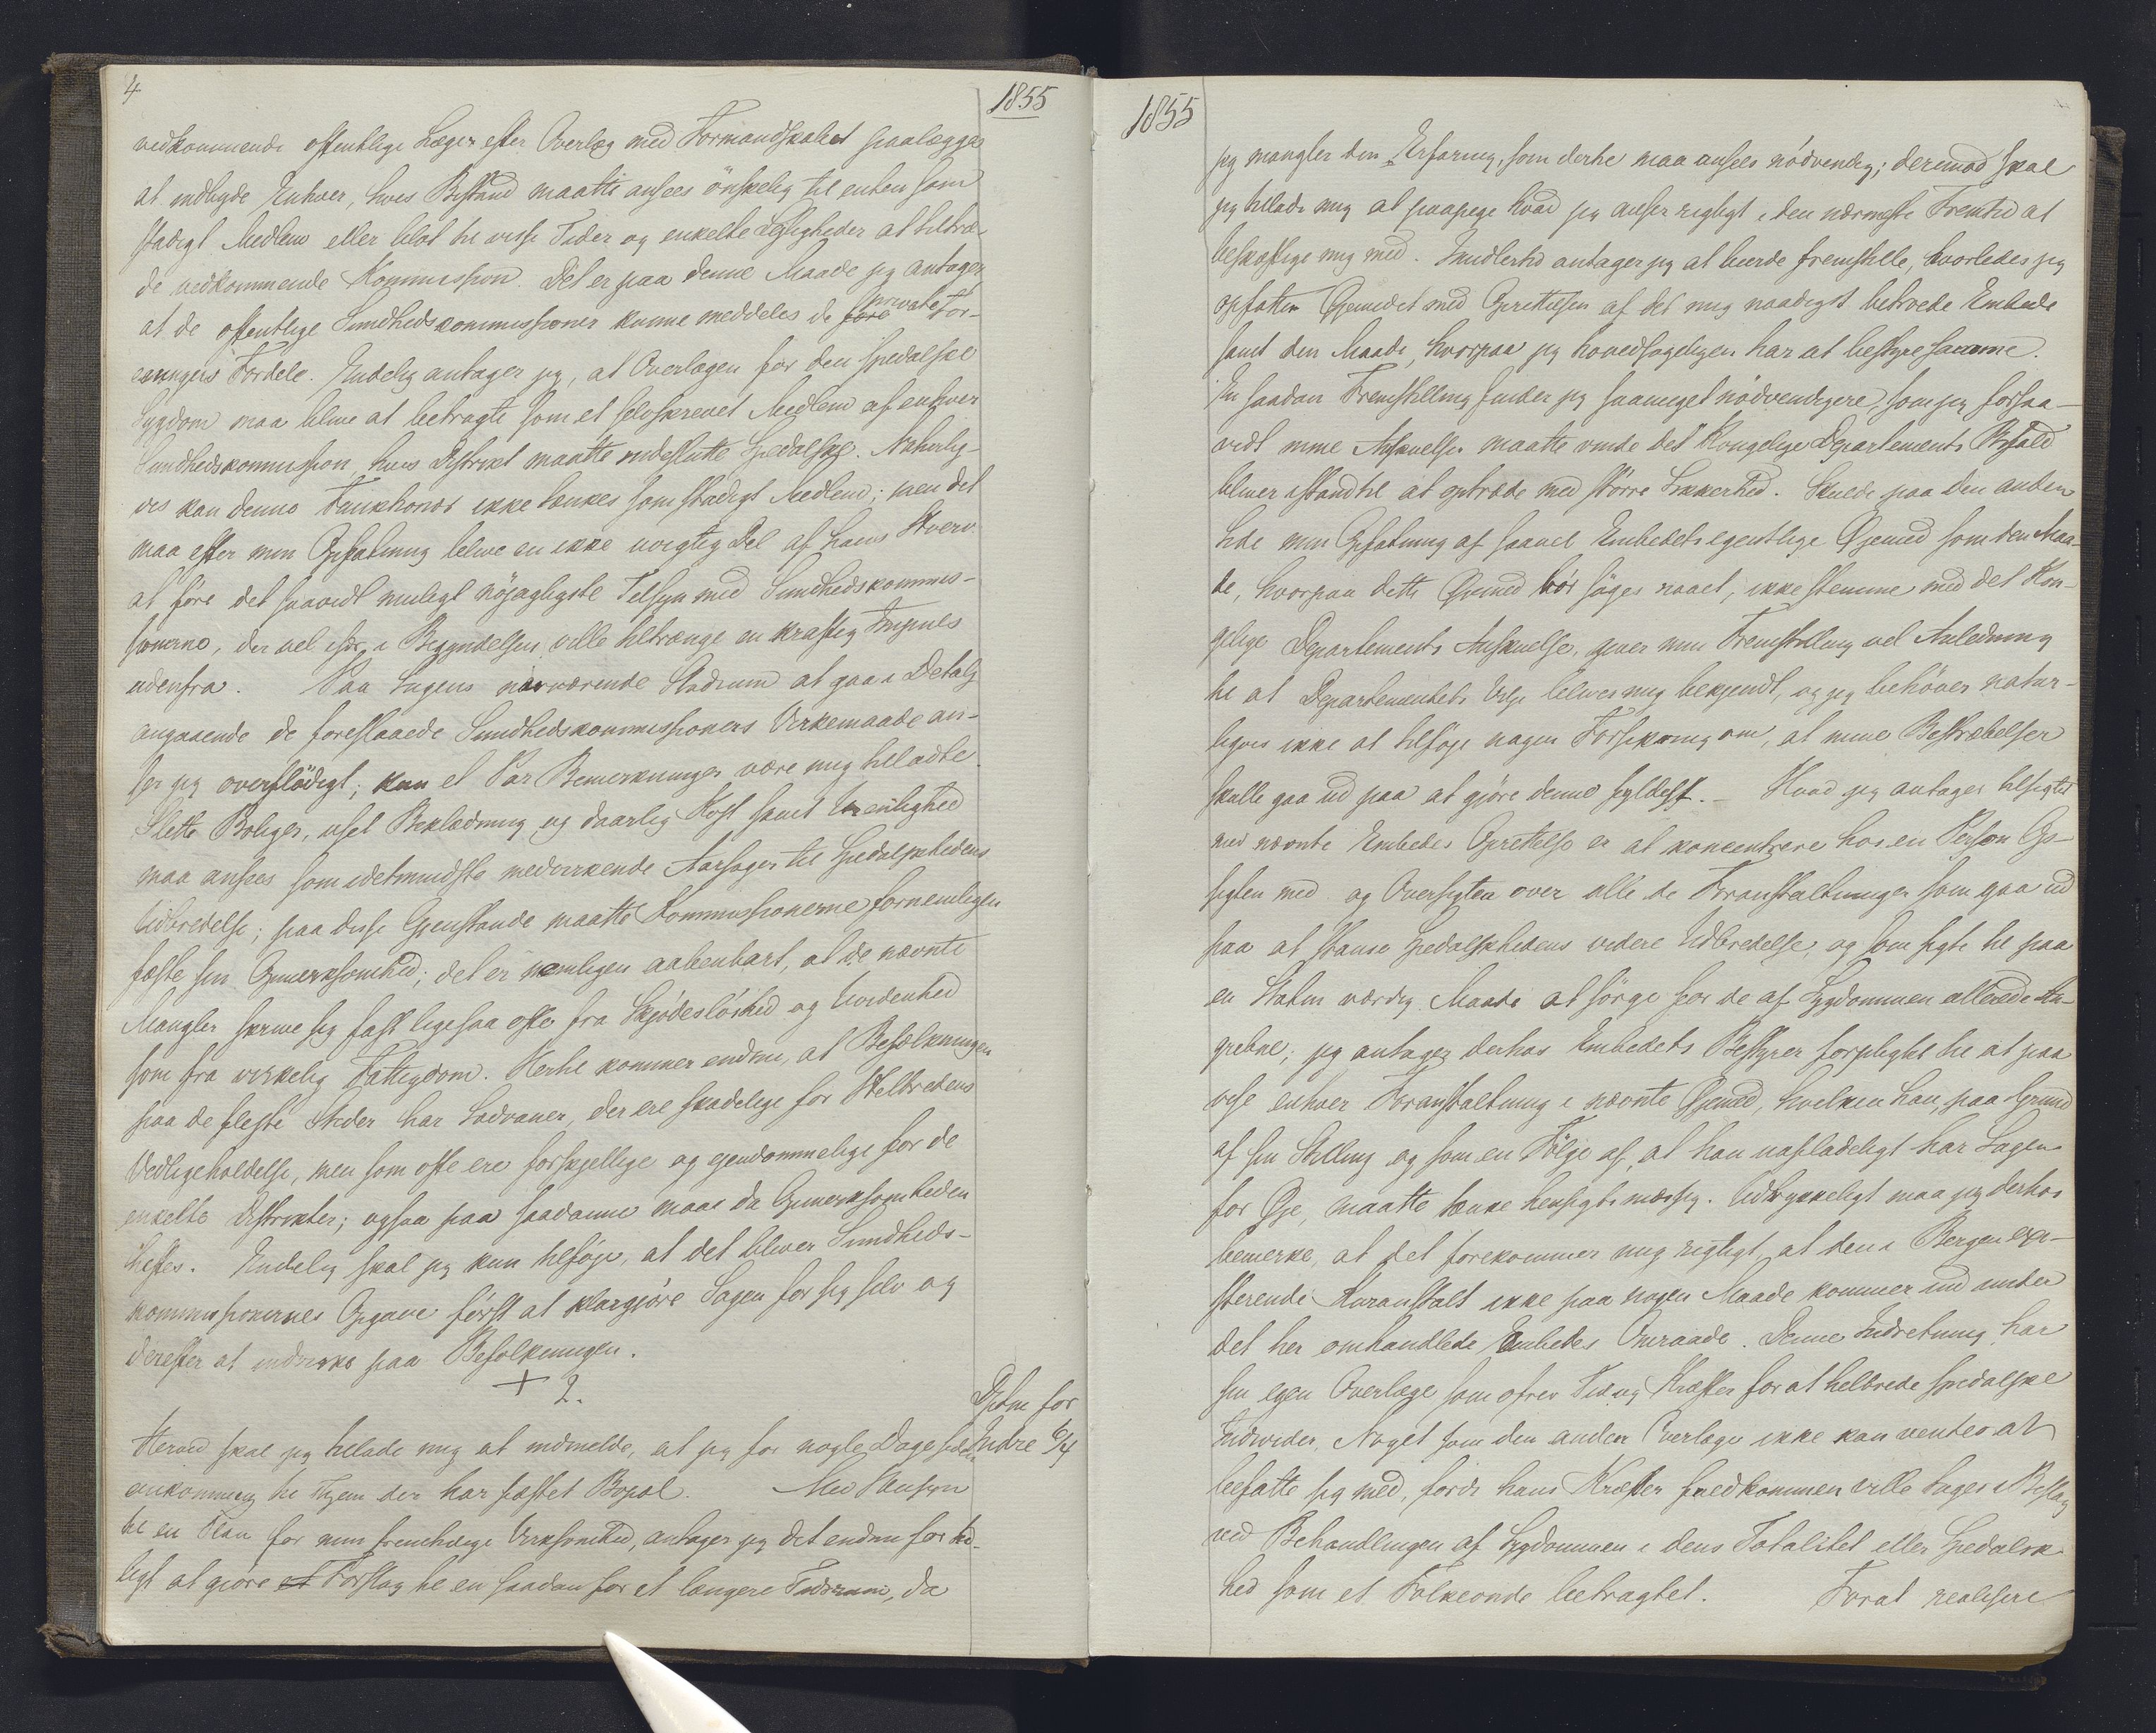 4
1855
vedkommende offentlige Læger efter Overlæg med Formandskabet paalægges
at indbyde Enhver, hvis Bistand maatte ansees önskelig til enten som
stadigt Medlem eller blot til visse Tider og enkelte Leiligheder at tiltræ-
de vedkommende Kommission. Det er paa denne Maade jeg antager,
at de offentlige Sundhedskommissioner kunne meddeles de fore private For-
eningers Fordele. Endelig antager jeg, at Overlægen for den spedalske
Sygdom maa blive at betragte som et selvskrevet Medlem af enhver
Sundhedskommission, hvis Distrikt maatte indeslutte Spedalske. Naturlig-
vis kan denne Funktionær ikke tænkes som stadigt Medlem; men det
maa efter min Opfatning blive en ikke uvigtig Del af hans Hverv
at före det saavidt muligt nöjagtigste Tilsyn med Sundhedskommis-
sionerne, der vel især i Begyndelsen ville tiltrænge en kraftig Impuls
udenfra. Paa Sagens nærværende Stadium at gaa i Detalj
angaaende de foreslaaede Sundhedskommissioners Virkemaade an-
ser jeg overflödigt; kun et Par Bemerkninger være mig tilladte.
Slette Boliger, ussel Beklædning og daarlig Kost samt Urenlighed
maa ansees som idetmindste medvirkende Aarsager til Spedalskhedens
Udbredelse; paa disse Gjenstande maatte Kommissionerne fornemligen
fæste sin Opmerksomhed; det er nemligen aabenbart, at de nævnte
Mangler skrive sig fast ligesaa ofte fra Skjödeslöshed og Uvidenhed
som fra virkelig Fattigdom. Hertil kommer endnu, at Befolkningen
paa de fleste Steder har Sædvaner, der ere skadelige for Helbredens
Vedligeholdelse, men som ofte ere forskjellige og ejendommelige for de
enkelte Distrikter; ogsaa paa saadanne maa da Opmerksomheden
heftes. Endelig skal jeg kun tilföje, at det bliver Sundheds-
kommissionernes Opgave först at klargjöre Sagen for sig selv og
derefter at indvirke paa Befolkningen.
+ 2.
Dptm for
Indre 6/4
Herved skal jeg tillade mig at indmelde, at jeg for nogle Dage siden
ankommen til Byen der har fæstet Bopæl. Med Hensyn
til en Plan for min fremtidige Virksomhed, antager jeg det endnu for tid-
ligt at gjöre et Forslag til en saadan for et længere Tidsrum, da
1855
jeg mangler den Erfaring, som dertil maa ansees nödvendig; derimod skal
jeg tillade mig at paapege hvad jeg anser rigtigt i den nærmeste Fremtid at
beskjæftige mig med. Imidlertid antager jeg at burde fremstille, hvorledes jeg
opfatter Öjemedet med Oprettelsen af det mig naadigst betroede Embede
samt den Maade, hvorpaa jeg hovedsageligen har at bestyre samme.
En saadan Fremstilling finder jeg saameget nödvendigere, som jeg forsaa-
vidt mine Anskuelser maatte vinde det Kongelige Departements Bifald
bliver istandtil at optræde med större Sikkerhed. Skulde paa den anden
Side min Opfatning af saavel Embedets egentlige Öjemed som den Maa-
de, hvorpaa dette Öjemed bör söges naaet, ikke stemme med det Kon-
gelige Departements Anskuelse, giver min Fremstilling vel Anledning
til at Departementets Vilje bliver mig bekjendt, og jeg behöver natur-
ligvis ikke at tilföje nogen Forsikring om, at mine Bestræbelser
skulle gaa ud paa at gjöre denne fyldest. – Hvad jeg antager tilsigtet
med nævnte Embedes Oprettelse er at koncentrere hos en Person Op-
sigten med og Oversigten over alle de Foranstaltninger som gaa ud
paa at standse Spedalskhedens videre Udbredelse, og som sigte til paa
en Staten værdig Maade at sörge for de af Sygdommen allerede An-
grebne; jeg antager derhos Embedets Bestyrer forpligtet til at paa
vise enhver Foranstaltning i nævnte Öjemed, hvilken han, paa Grund
af sin Stilling og som en Fölge af, at han uafladeligt har Sagen
for Öje, maatte tænke hensigtsmæssig. Udtrykkeligt maa jeg derhos
bemerke, at det forekommer mig rigtigt, at den i Bergen exi-
sterende Kuranstalt ikke paa nogen Maade kommer ind under
det her omhandlede Embedes Omraade. Denne Indretning har
sin egen Overlæge som ofrer Tid og Kræfter for at helbrede spedalske
Individer, Noget som den anden Overlæge ikke kan ventes at
befatte sig med, fordi hans Kræfter fuldkommen ville tages i Beslag
ved Behandlingen af Sygdommen i dens Totalitet eller Spedalsk
hed som et Folkeonde betragtet. Forat realisere